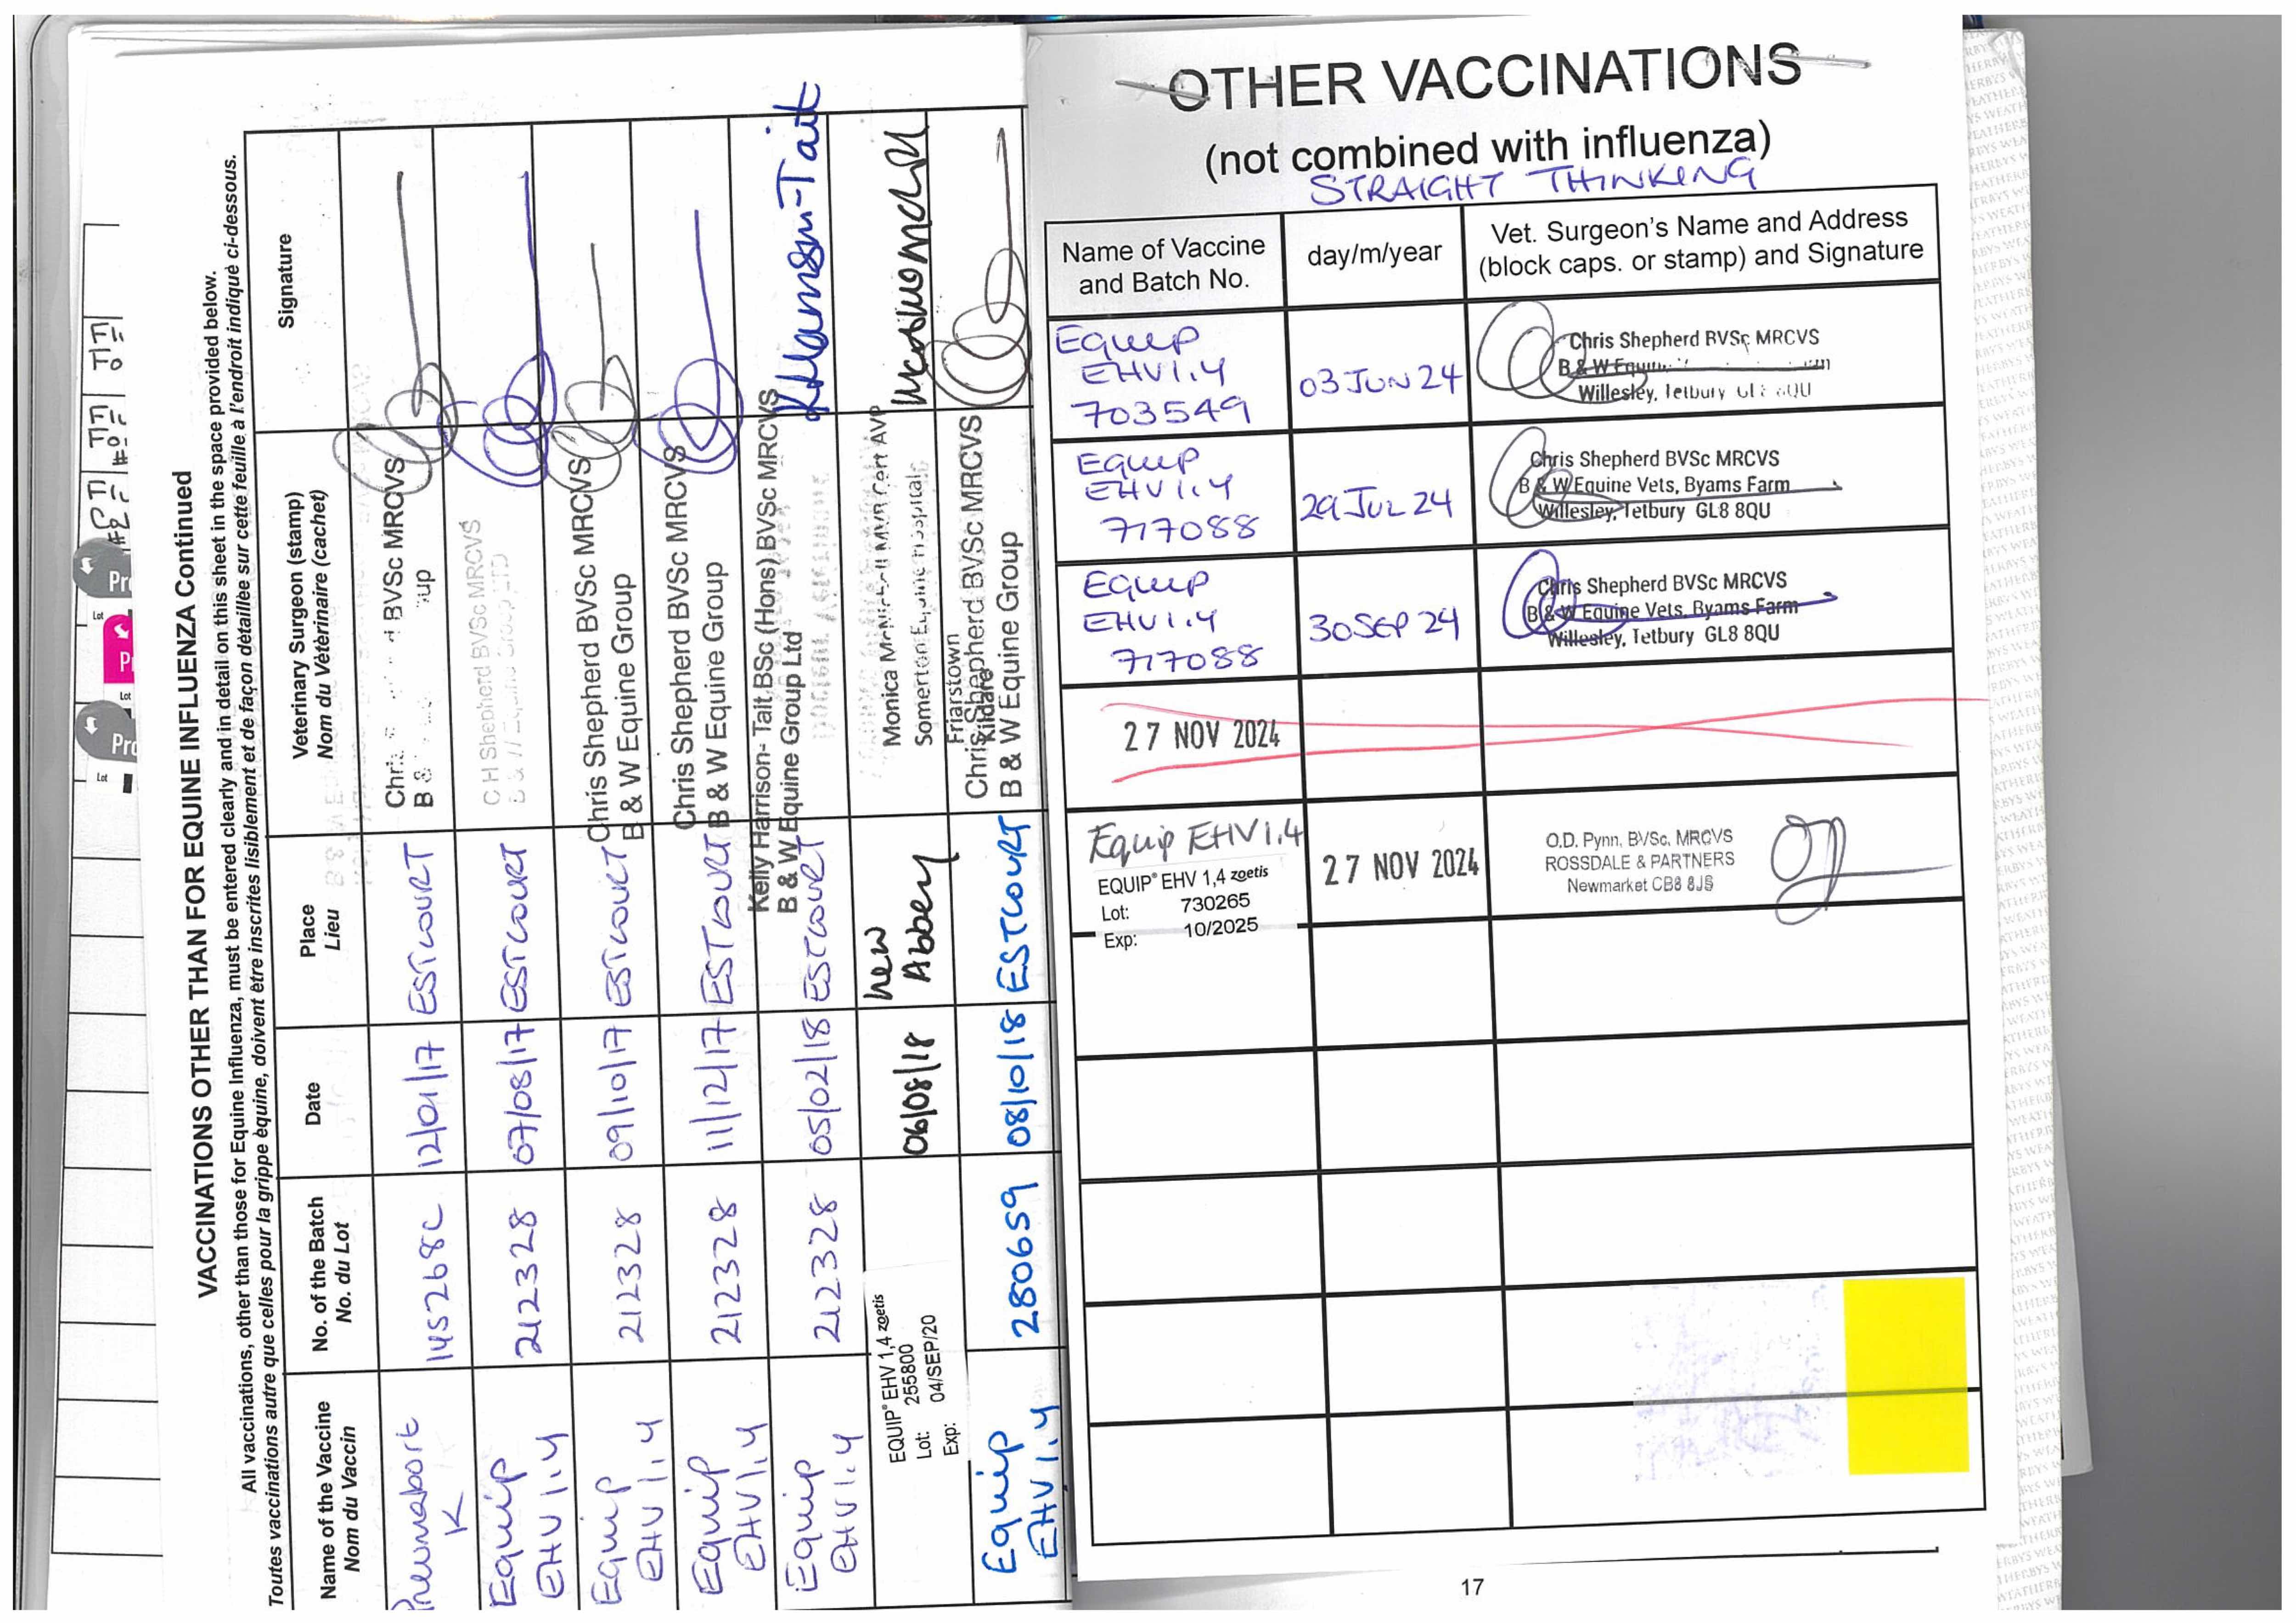 VACCINATIONS OTHER THAN FOR EQUINE INFLUENZA Continued
All vaccinations, other than those for Equine Influenza, must be entered clearly and in detail on this sheet in the space provided below.
Toutes vaccinations autre que celles pour la grippe équine, doivent être inscrites lisiblement et de façon détaillée sur cette feuille à l'endroit indiqué ci-dessous.
Name of the Vaccine
Nom du Vaccin
No. of the Batch
No. du Lot
Date
Place
Lieu
Veterinary Surgeon (stamp)
Nom du Vétérinaire (cachet)
Signature
Pneumabort
K
145268C
12/01/17
ESTCOURT
BVSc MRCVS
Equip
EHV 1.4
212328
07/08/17
ESTCOURT
C H Shepherd BVSc MRCVS
Equip
EHV 1.4
212328
09/10/17
ESTCOURT
Chris Shepherd BVSc MRCVS
B & W Equine Group
Equip
EHV 1.4
212328
11/12/17
ESTCOURT
Chris Shepherd BVSc MRCVS
B & W Equine Group
Equip
EHV 1.4
212328
05/02/18
ESTCOURT
Kelly Harrison- Tait BSc (Hons) BVSc MRCVS
B & W Equine Group Ltd
KHarrison-Tait
EQUIP® EHV 1,4 zoetis
Lot: 255800
Exp: 04/SEP/20
06/08/18
New
Abbey
Monica
Somerton Equine Hospital
Friarstown
Kildare
Equip
EHV 1.4
280659
08/10/18
ESTCOURT
Chris Shepherd BVSc MRCVS
B & W Equine Group
OTHER VACCINATIONS
(not combined with influenza)
STRAIGHT THINKING
Name of Vaccine
and Batch No.
day/m/year
Vet. Surgeon's Name and Address
(block caps. or stamp) and Signature
Equip
EHV1.4
703549
03 JUN 24
Chris Shepherd BVSc MRCVS
B & W
Willesley, Tetbury
Equip
EHV1.4
717088
29 JUL 24
Chris Shepherd BVSc MRCVS
B & W Equine Vets, Byams Farm
Willesley, Tetbury GL8 8QU
Equip
EHV1.4
717088
30 SEP 24
Chris Shepherd BVSc MRCVS
B & W Equine Vets, Byams Farm
Willesley, Tetbury GL8 8QU
27 NOV 2024
Equip EHV1.4
EQUIP® EHV 1,4 zoetis
Lot: 730265
Exp: 10/2025
27 NOV 2024
O.D. Pynn, BVSc, MRCVS
ROSSDALE & PARTNERS
Newmarket CB8 8JS
17